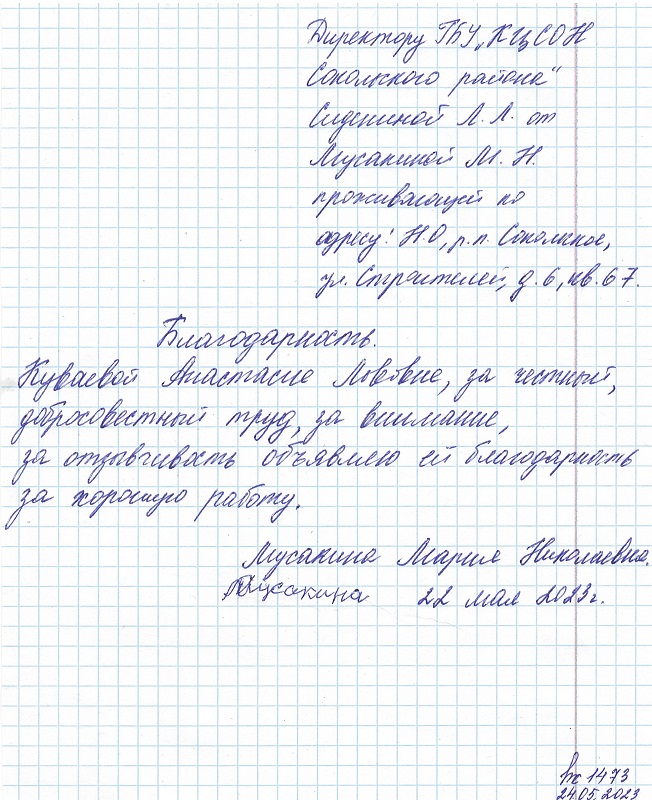 Директору ГБУ „КЦСОН
Сокольского района"
Сидениной Л.Л. от
Мусакиной М.Н.
проживающей по
адресу: Н.О, р.п. Сокольское,
ул. Строителей, д.6, кв.67.
Благодарность.
Куваевой Анастасие Львовне, за честный,
добросовестный труд, за внимание,
за отзывчивость объявляю ей благодарность
за хорошую работу.
Мусакина Мария Николаевна.
Мусакина 22 мая 2023г.
вх 1473
24.05.2023